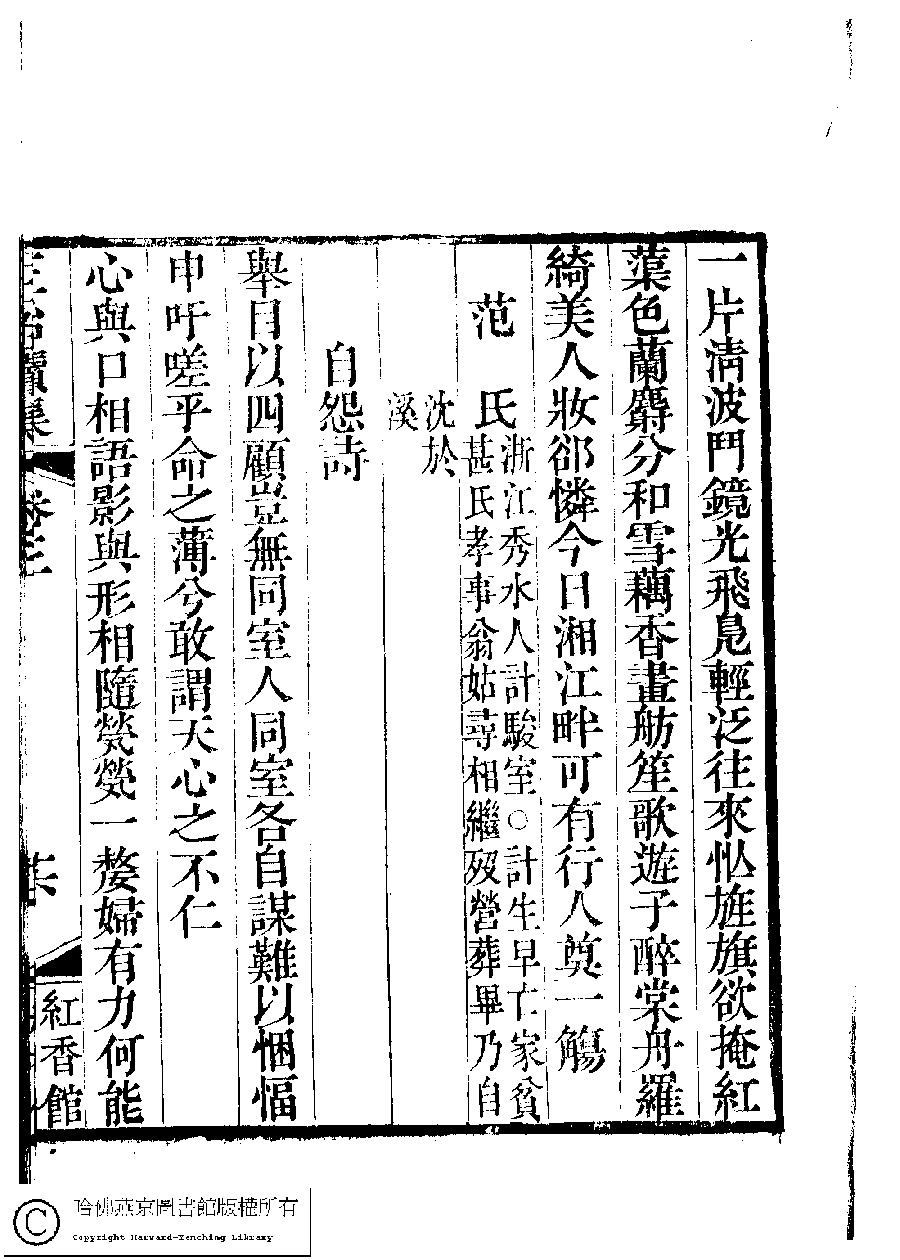 一片淸波鬥鏡光飛鳬輕泛往來忙旌旗欲掩紅
蕖色蘭麝分和雪藕香畫舫笙歌遊子醉棠舟羅
綺美人妝郤憐今日湘江畔可有行人奠一觴
范氏
浙江秀水人計駿室○計生早亡家貧
甚氏孝事翁姑尋相繼歿營葬畢乃自
沈於
溪
自怨詩
舉目以四顧豈無同室人同室各自謀難以悃愊
申吁嗟乎命之薄兮敢謂天心之不仁
心與口相語影與形相隨煢煢一嫠婦有力何能
卷三
紅香館
哈佛燕京圖書館版權所有
Copyright Harvard-Yenching Library